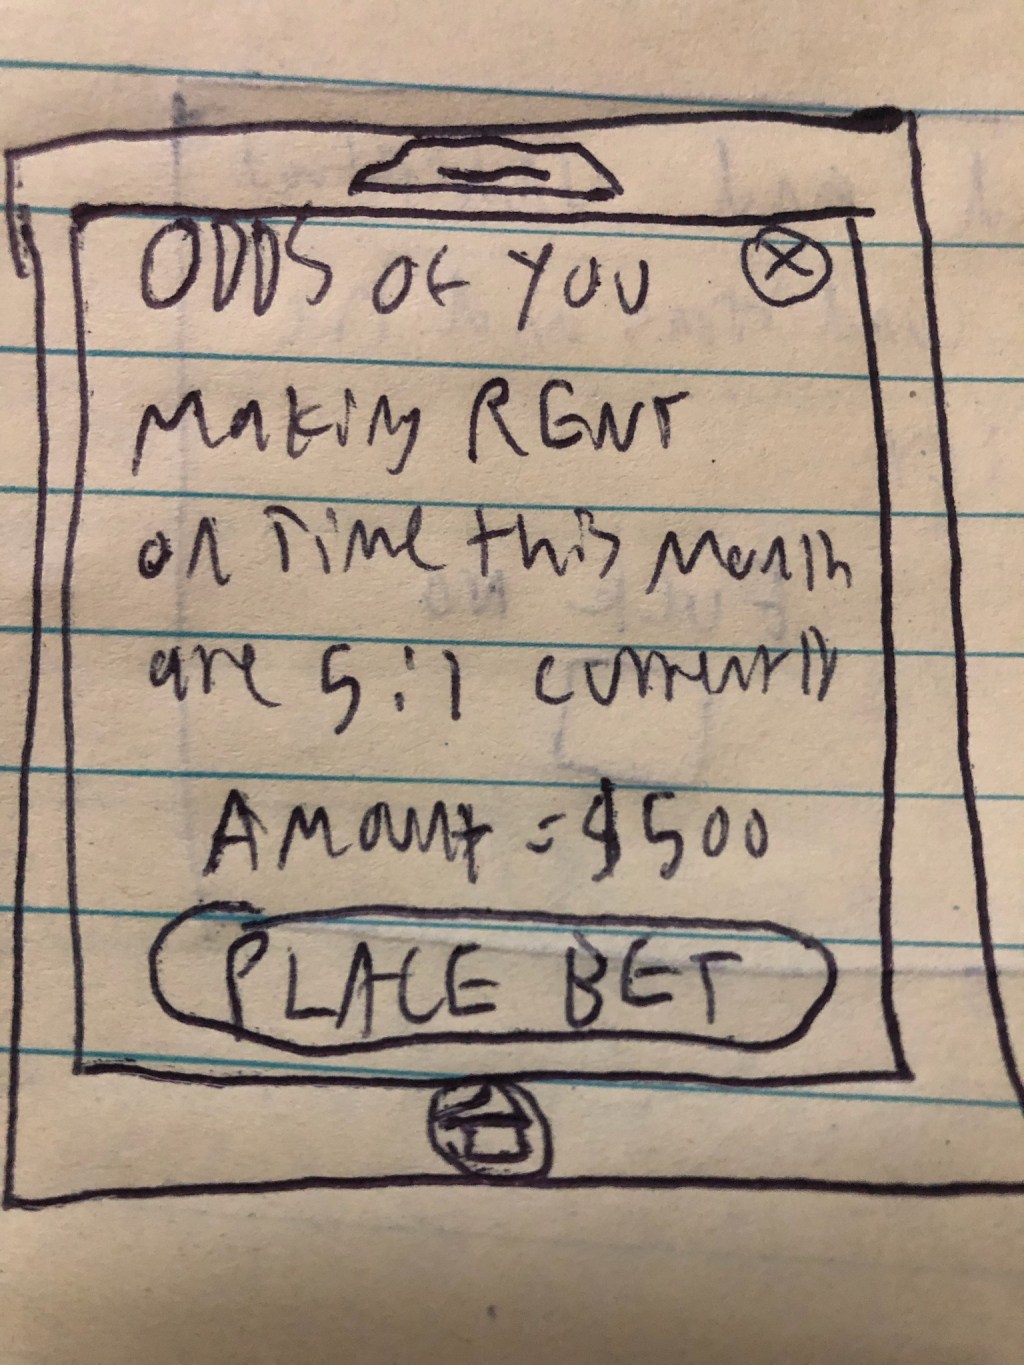 ODDS OF YOU
Making RENT
on Time this Month
are 5:1 currently
Amount = $500
PLACE BET